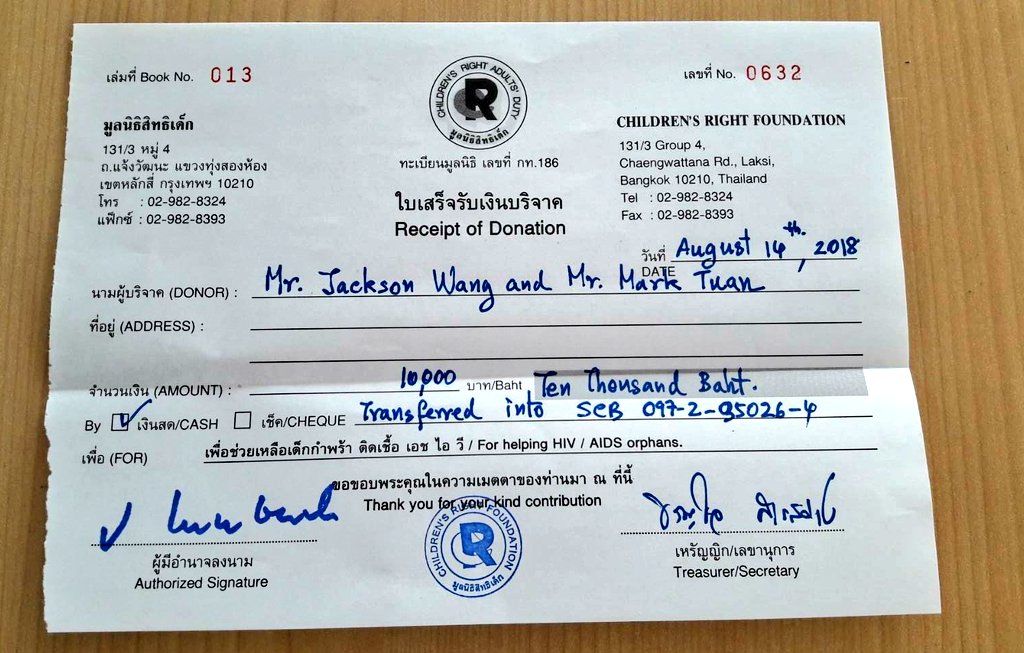 เล่มที่ Book No. 013
CHILDREN'S RIGHT ADULTS' DUTY
R
มูลนิธิสิทธิเด็ก
เลขที่ No. 0632
มูลนิธิสิทธิเด็ก
131/3 หมู่ 4
ถ.แจ้งวัฒนะ แขวงทุ่งสองห้อง
เขตหลักสี่ กรุงเทพฯ 10210
โทร : 02-982-8324
แฟ็กซ์ : 02-982-8393
ทะเบียนมูลนิธิ เลขที่ กท.186
ใบเสร็จรับเงินบริจาค
Receipt of Donation
CHILDREN'S RIGHT FOUNDATION
131/3 Group 4,
Chaengwattana Rd., Laksi,
Bangkok 10210, Thailand
Tel : 02-982-8324
Fax : 02-982-8393
วันที่ August 14th, 2018
DATE
นามผู้บริจาค (DONOR) : Mr. Jackson Wang and Mr. Mark Tuan
ที่อยู่ (ADDRESS) :
จำนวนเงิน (AMOUNT) : 10,000 บาท/Baht Ten Thousand Baht.
By เงินสด/CASH เช็ค/CHEQUE Transferred into SCB 097-2-95026-4
เพื่อ (FOR) เพื่อช่วยเหลือเด็กกำพร้า ติดเชื้อ เอช ไอ วี / For helping HIV / AIDS orphans.
ขอขอบพระคุณในความเมตตาของท่านมา ณ ที่นี้
Thank you for your kind contribution
CHILDREN'S RIGHT FOUNDATION
R
มูลนิธิสิทธิเด็ก
ผู้มีอำนาจลงนาม
Authorized Signature
เหรัญญิก/เลขานุการ
Treasurer/Secretary